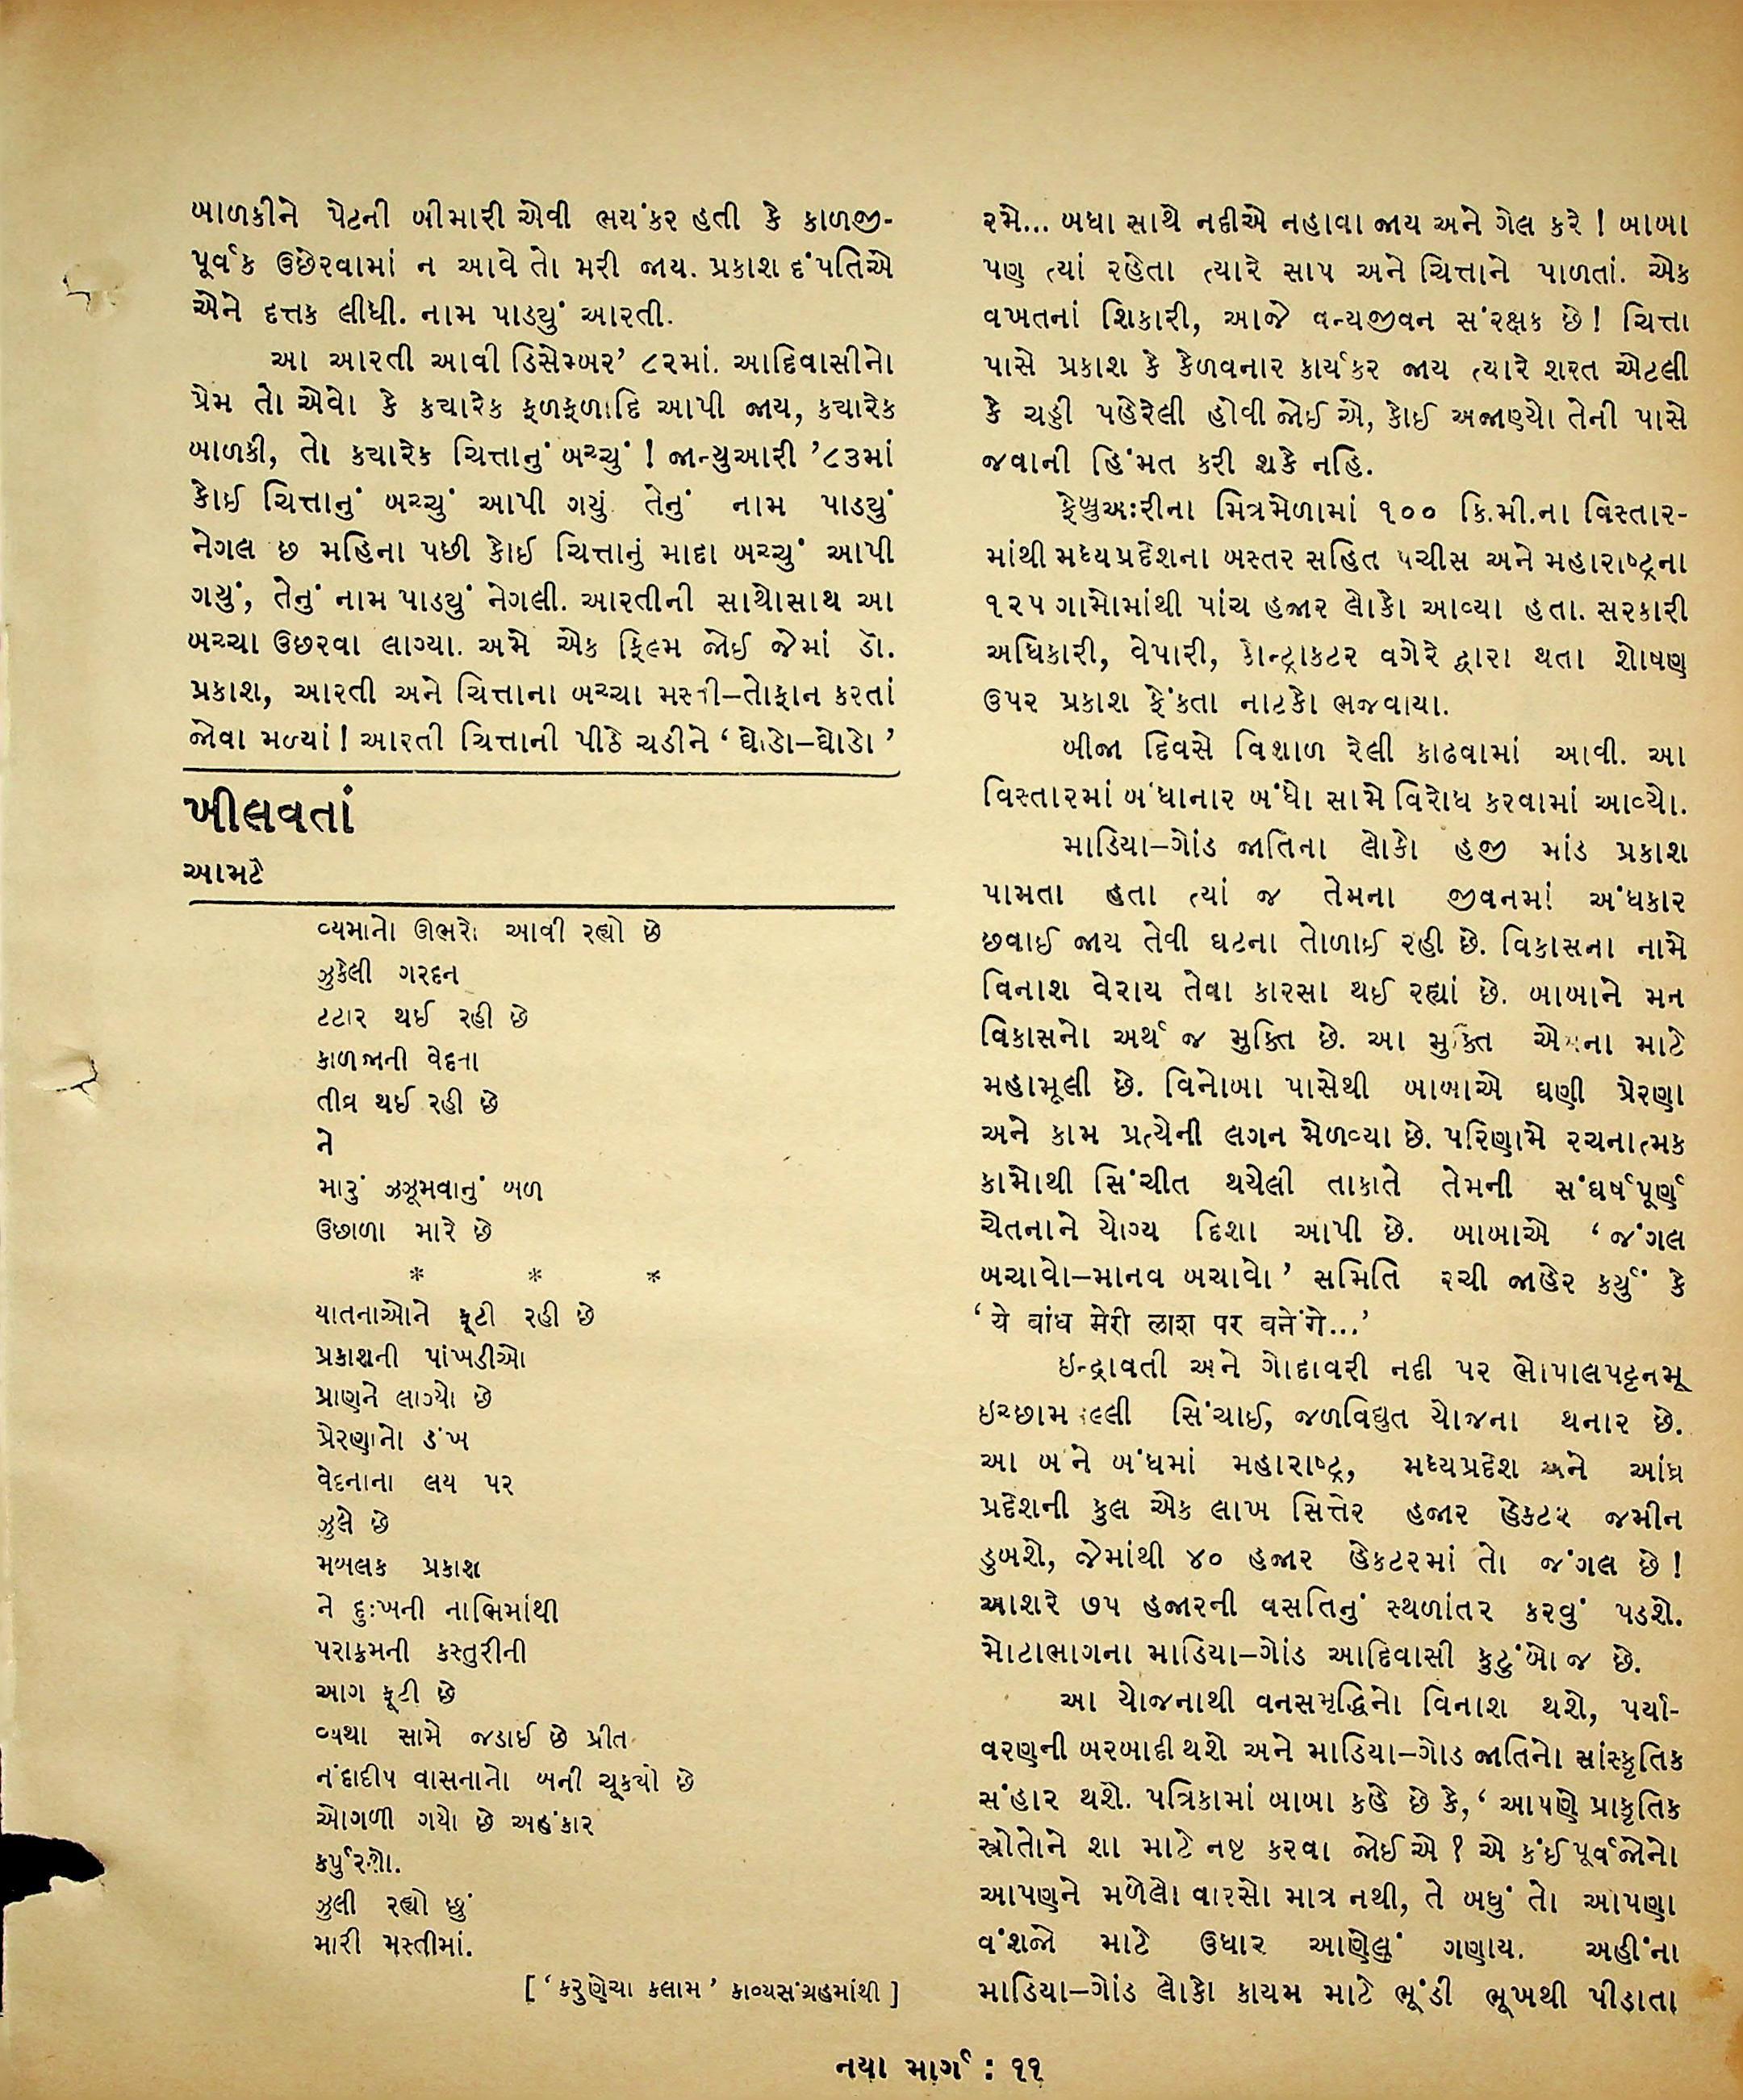 બાળકીને પેટની બીમારી એવી ભયંકર હતી કે કાળજી-
પૂર્વક ઉછેરવામાં ન આવે તો મરી જાય. પ્રકાશ દંપતિએ
એને દત્તક લીધી. નામ પાડ્યું આરતી.
આ આરતી આવી ડિસેમ્બર’ ૮૨માં. આદિવાસીનો
પ્રેમ તો એવો કે ક્યારેક ફળફળાદિ આપી જાય, ક્યારેક
બાળકી, તો ક્યારેક ચિત્તાનું બચ્ચું ! જાન્યુઆરી ’૮૩માં
કોઈ ચિત્તાનું બચ્ચું આપી ગયું તેનું નામ પાડ્યું
નેગલ છ મહિના પછી કોઈ ચિત્તાનું માદા બચ્ચું આપી
ગયું, તેનું નામ પાડ્યું નેગલી. આરતીની સાથોસાથ આ
બચ્ચા ઉછરવા લાગ્યા. અમે એક ફિલ્મ જોઈ જેમાં ડૉ.
પ્રકાશ, આરતી અને ચિત્તાના બચ્ચા મસ્તી–તોફાન કરતાં
જોવા મળ્યાં! આરતી ચિત્તાની પીઠે ચડીને ‘ ઘોડો–ઘોડો ’
ખીલવતાં
આમટે
વ્યમાનો ઊભરો આવી રહ્યો છે
ઝુકેલી ગરદન
ટટાર થઈ રહી છે
કાળજાની વેદના
તીવ્ર થઈ રહી છે
ને
મારું ઝઝૂમવાનું બળ
ઉછાળા મારે છે
* * *
યાતનાઓને ફૂટી રહી છે
પ્રકાશની પાંખડીઓ
પ્રાણને લાગ્યો છે
પ્રેરણાનો ડંખ
વેદનાના લય પર
ઝુલે છે
મબલક પ્રકાશ
ને દુઃખની નાભિમાંથી
પરાક્રમની કસ્તુરીની
આગ ફૂટી છે
વ્યથા સામે જડાઈ છે પ્રીત
નંદાદીપ વાસનાનો બની ચૂક્યો છે
ઓગળી ગયો છે અહંકાર
કર્પુરશો.
ઝુલી રહ્યો છું
મારી મસ્તીમાં.
[ ‘ કરુણેચા કલામ ’ કાવ્યસંગ્રહમાંથી ]
રમે... બધા સાથે નદીએ નહાવા જાય અને ગેલ કરે ! બાબા
પણ ત્યાં રહેતા ત્યારે સાપ અને ચિત્તાને પાળતાં. એક
વખતનાં શિકારી, આજે વન્યજીવન સંરક્ષક છે! ચિત્તા
પાસે પ્રકાશ કે કેળવનાર કાર્યકર જાય ત્યારે શરત એટલી
કે ચડ્ડી પહેરેલી હોવી જોઈ એ, કોઈ અજાણ્યો તેની પાસે
જવાની હિંમત કરી શકે નહિ.
ફેબ્રુઆરીના મિત્રમેળામાં ૧૦૦ કિ.મી.ના વિસ્તાર-
માંથી મધ્યપ્રદેશના બસ્તર સહિત પચીસ અને મહારાષ્ટ્રના
૧૨૫ ગામોમાંથી પાંચ હજાર લોકો આવ્યા હતા. સરકારી
અધિકારી, વેપારી, કોન્ટ્રાકટર વગેરે દ્વારા થતા શોષણ
ઉપર પ્રકાશ ફેંકતા નાટકો ભજવાયા.
બીજા દિવસે વિશાળ રેલી કાઢવામાં આવી. આ
વિસ્તારમાં બંધાનાર બંધો સામે વિરોધ કરવામાં આવ્યો.
માડિયા–ગોંડ જાતિના લોકો હજી માંડ પ્રકાશ
પામતા હતા ત્યાં જ તેમના જીવનમાં અંધકાર
છવાઈ જાય તેવી ઘટના તોળાઈ રહી છે. વિકાસના નામે
વિનાશ વેરાય તેવા કારસા થઈ રહ્યાં છે. બાબાને મન
વિકાસનો અર્થ જ મુક્તિ છે. આ મુક્તિ એમના માટે
મહામૂલી છે. વિનોબા પાસેથી બાબાએ ઘણી પ્રેરણા
અને કામ પ્રત્યેની લગન મેળવ્યા છે. પરિણામે રચનાત્મક
કામોથી સિંચીત થયેલી તાકાતે તેમની સંઘર્ષપૂર્ણ
ચેતનાને યોગ્ય દિશા આપી છે. બાબાએ ‘ જંગલ
બચાવો–માનવ બચાવો ’ સમિતિ રચી જાહેર કર્યું કે
‘ ये बांध मेरी लाश पर बनेंगे...’
ઇન્દ્રાવતી અને ગોદાવરી નદી પર ભોપાલપટ્ટનમ્
ઇચ્છામપલ્લી સિંચાઈ, જળવિદ્યુત યોજના થનાર છે.
આ બંને બંધમાં મહારાષ્ટ્ર, મધ્યપ્રદેશ અને આંધ્ર
પ્રદેશની કુલ એક લાખ સિત્તેર હજાર હેકટર જમીન
ડુબશે, જેમાંથી ૪૦ હજાર હેકટરમાં તો જંગલ છે !
આશરે ૭૫ હજારની વસતિનું સ્થળાંતર કરવું પડશે.
મોટાભાગના માડિયા–ગોંડ આદિવાસી કુટુંબો જ છે.
આ યોજનાથી વનસમૃદ્ધિનો વિનાશ થશે, પર્યા-
વરણની બરબાદી થશે અને માડિયા–ગોડ જાતિનો સાંસ્કૃતિક
સંહાર થશે. પત્રિકામાં બાબા કહે છે કે, ‘ આપણે પ્રાકૃતિક
સ્ત્રોતોને શા માટે નષ્ટ કરવા જોઈ એ ? એ કંઈ પૂર્વજોનો
આપણને મળેલો વારસો માત્ર નથી, તે બધું તો આપણા
વંશજો માટે ઉધાર આણેલું ગણાય. અહીંના
માડિયા–ગોંડ લોકો કાયમ માટે ભૂંડી ભૂખથી પીડાતા
નયા માર્ગ : ૧૧